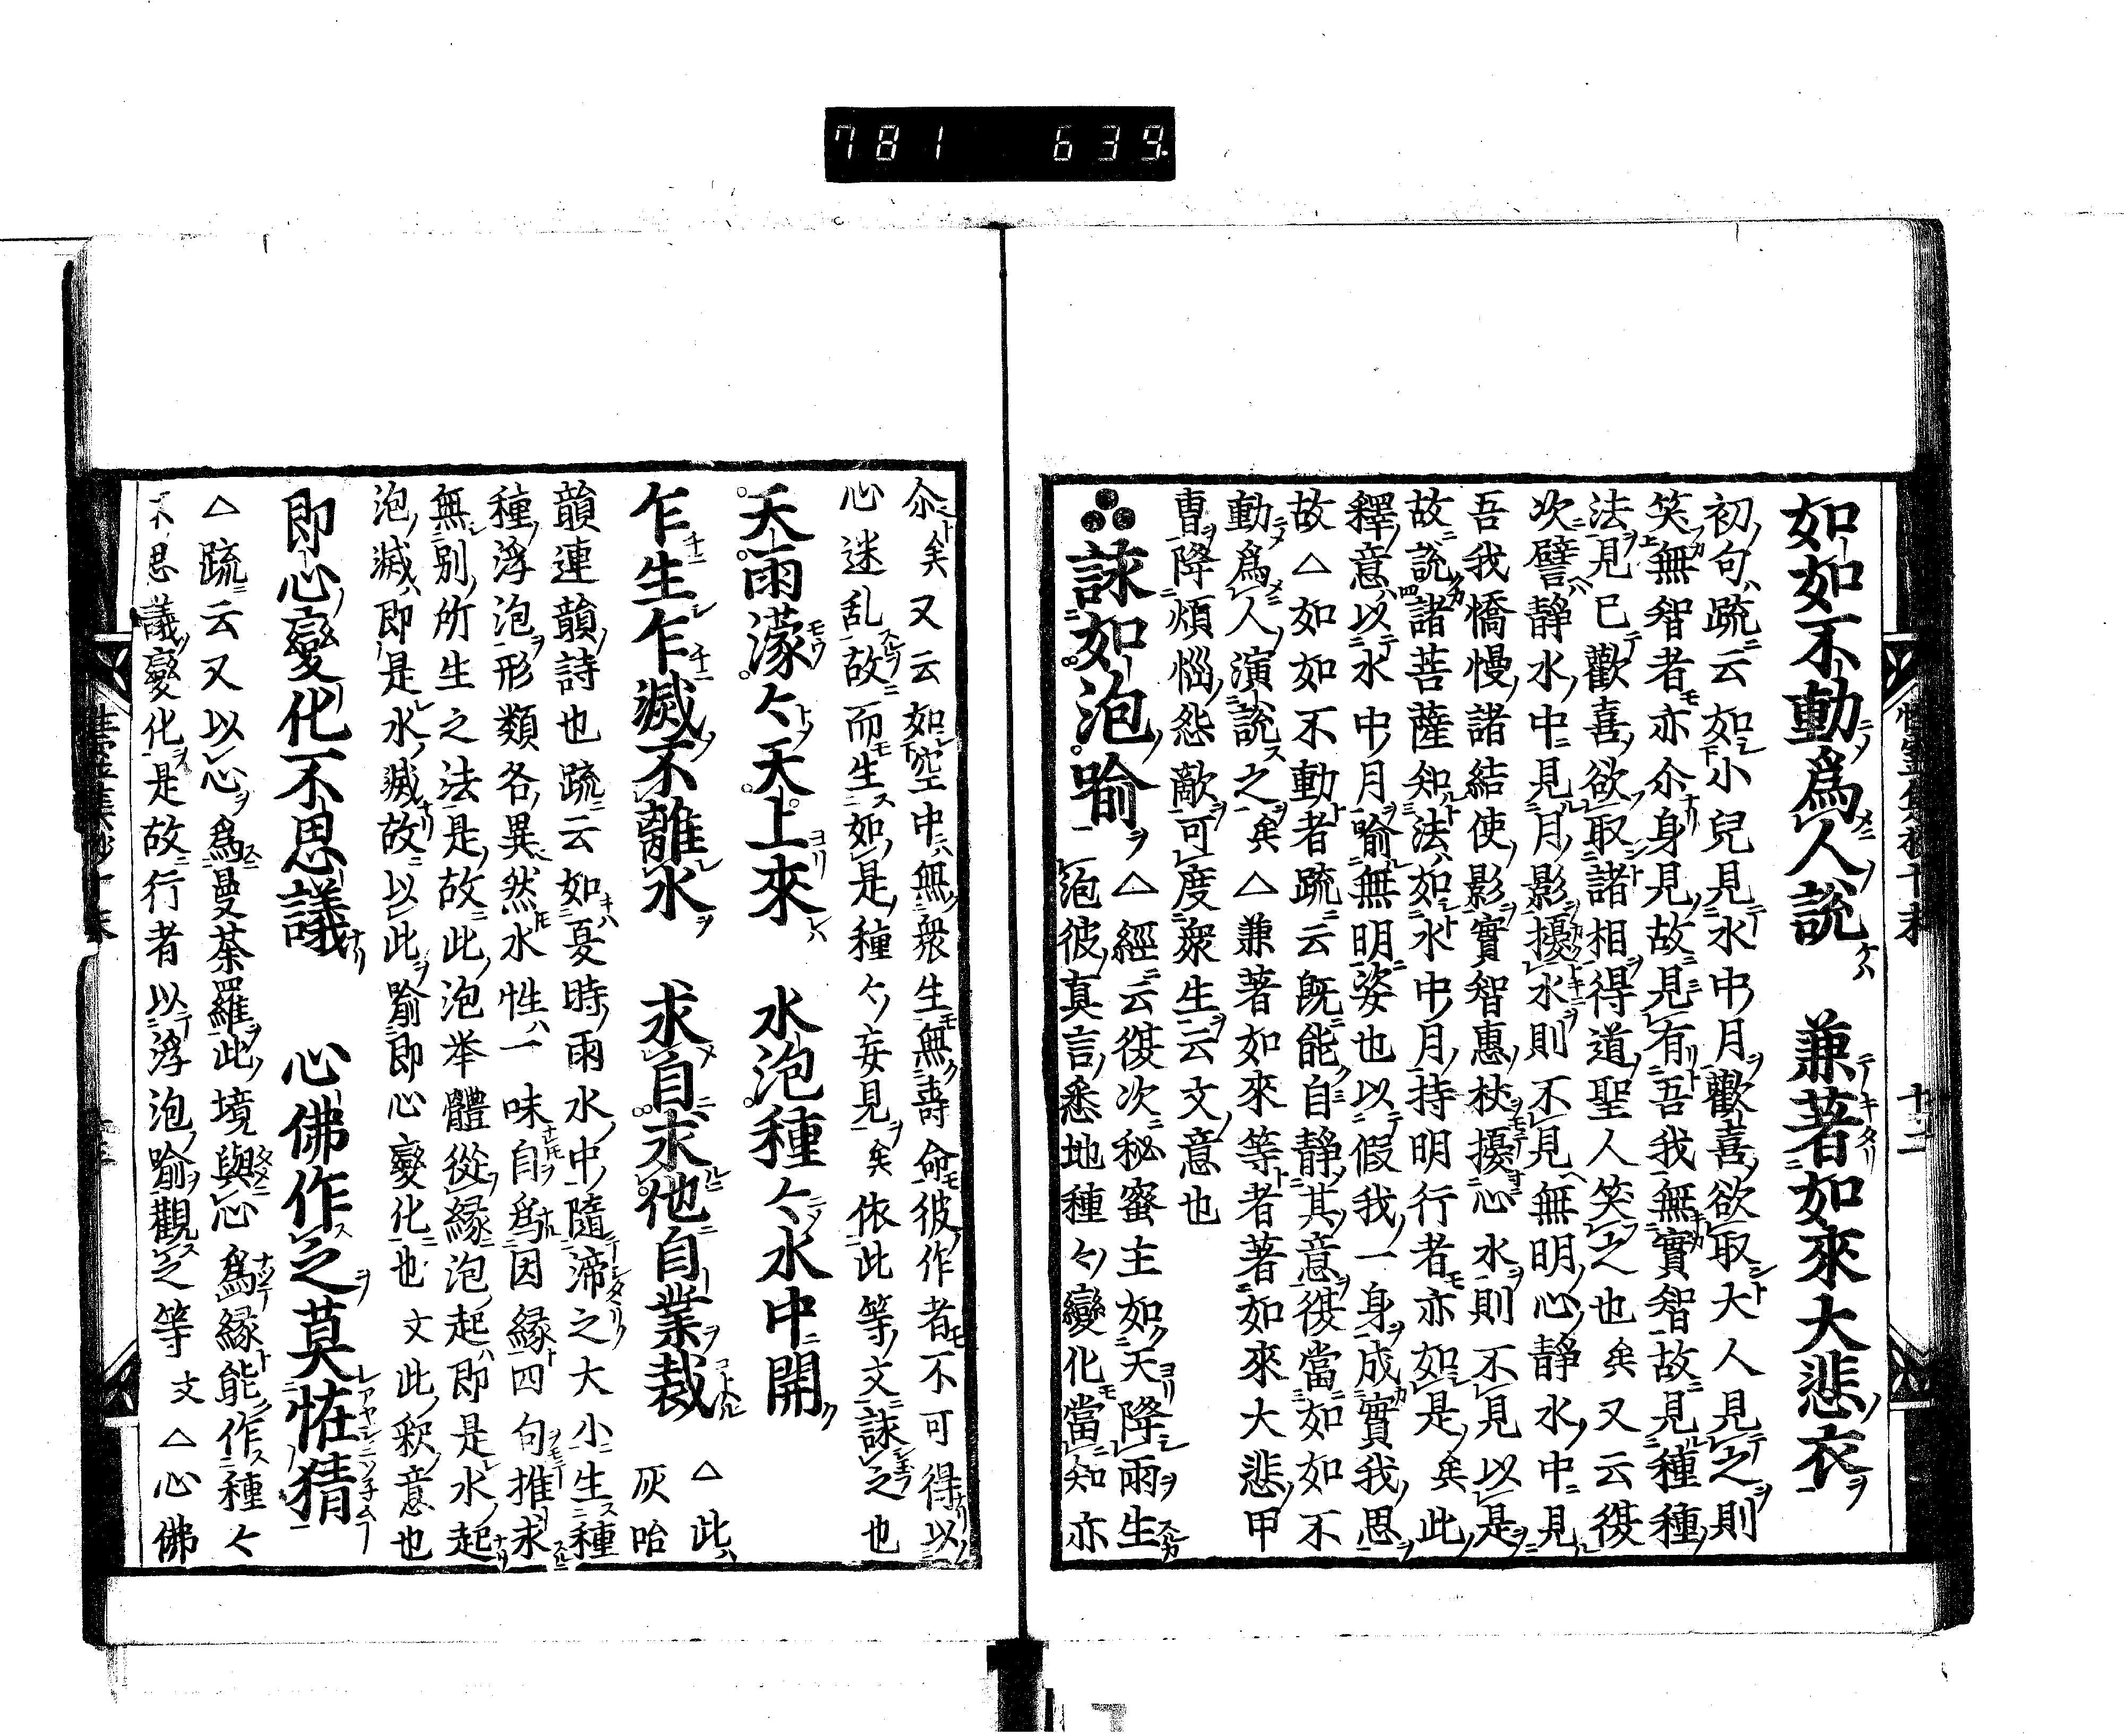 781 639
如如不動爲人說 兼著如來大悲衣
初句疏云如小兒見水中月歡喜欲取大人見之則
笑無智者亦尒身見故見有吾我無實智故見種種
法見已歡喜欲取諸相得道聖人笑之也矣又云復
次譬靜水中見月影擾水則不見無明心靜水中見
吾我憍慢諸結使影實智惠杖擾心水則不見以是
故說諸菩薩知法如水中月持明行者亦如是矣此
釋意以水中月喻無明姿也以假我一身成實我思
故△如如不動者疏云既能自靜其意復當如如不
動爲人演說之矣△兼著如來等者著如來大悲甲
曹降煩惱怨敵可度衆生云文意也
詠如泡喻 △經云復次秘蜜主如天降雨生
泡彼真言悉地種々變化當知亦
尒矣又云如空中無衆生無壽命彼作者不可得以
心迷乱故而生如是種々妄見矣依此等文詠之也
天雨濛々天上來 水泡種々水中開
乍生乍滅不離水 求自求他自業裁 △此
灰咍
韻連韻詩也疏云如夏時雨水中隨渧之大小生種
種浮泡形類各異然水性一味自爲因緣四句推求
無別所生之法是故此泡举體從緣泡起即是水起
泡滅即是水滅故以此喻即心變化也文此釈意也
即心變化不思議 心佛作之莫恠猜
△疏云又以心爲曼荼羅此境與心爲緣能作種々
不思議變化是故行者以浮泡喻觀之等文△心佛